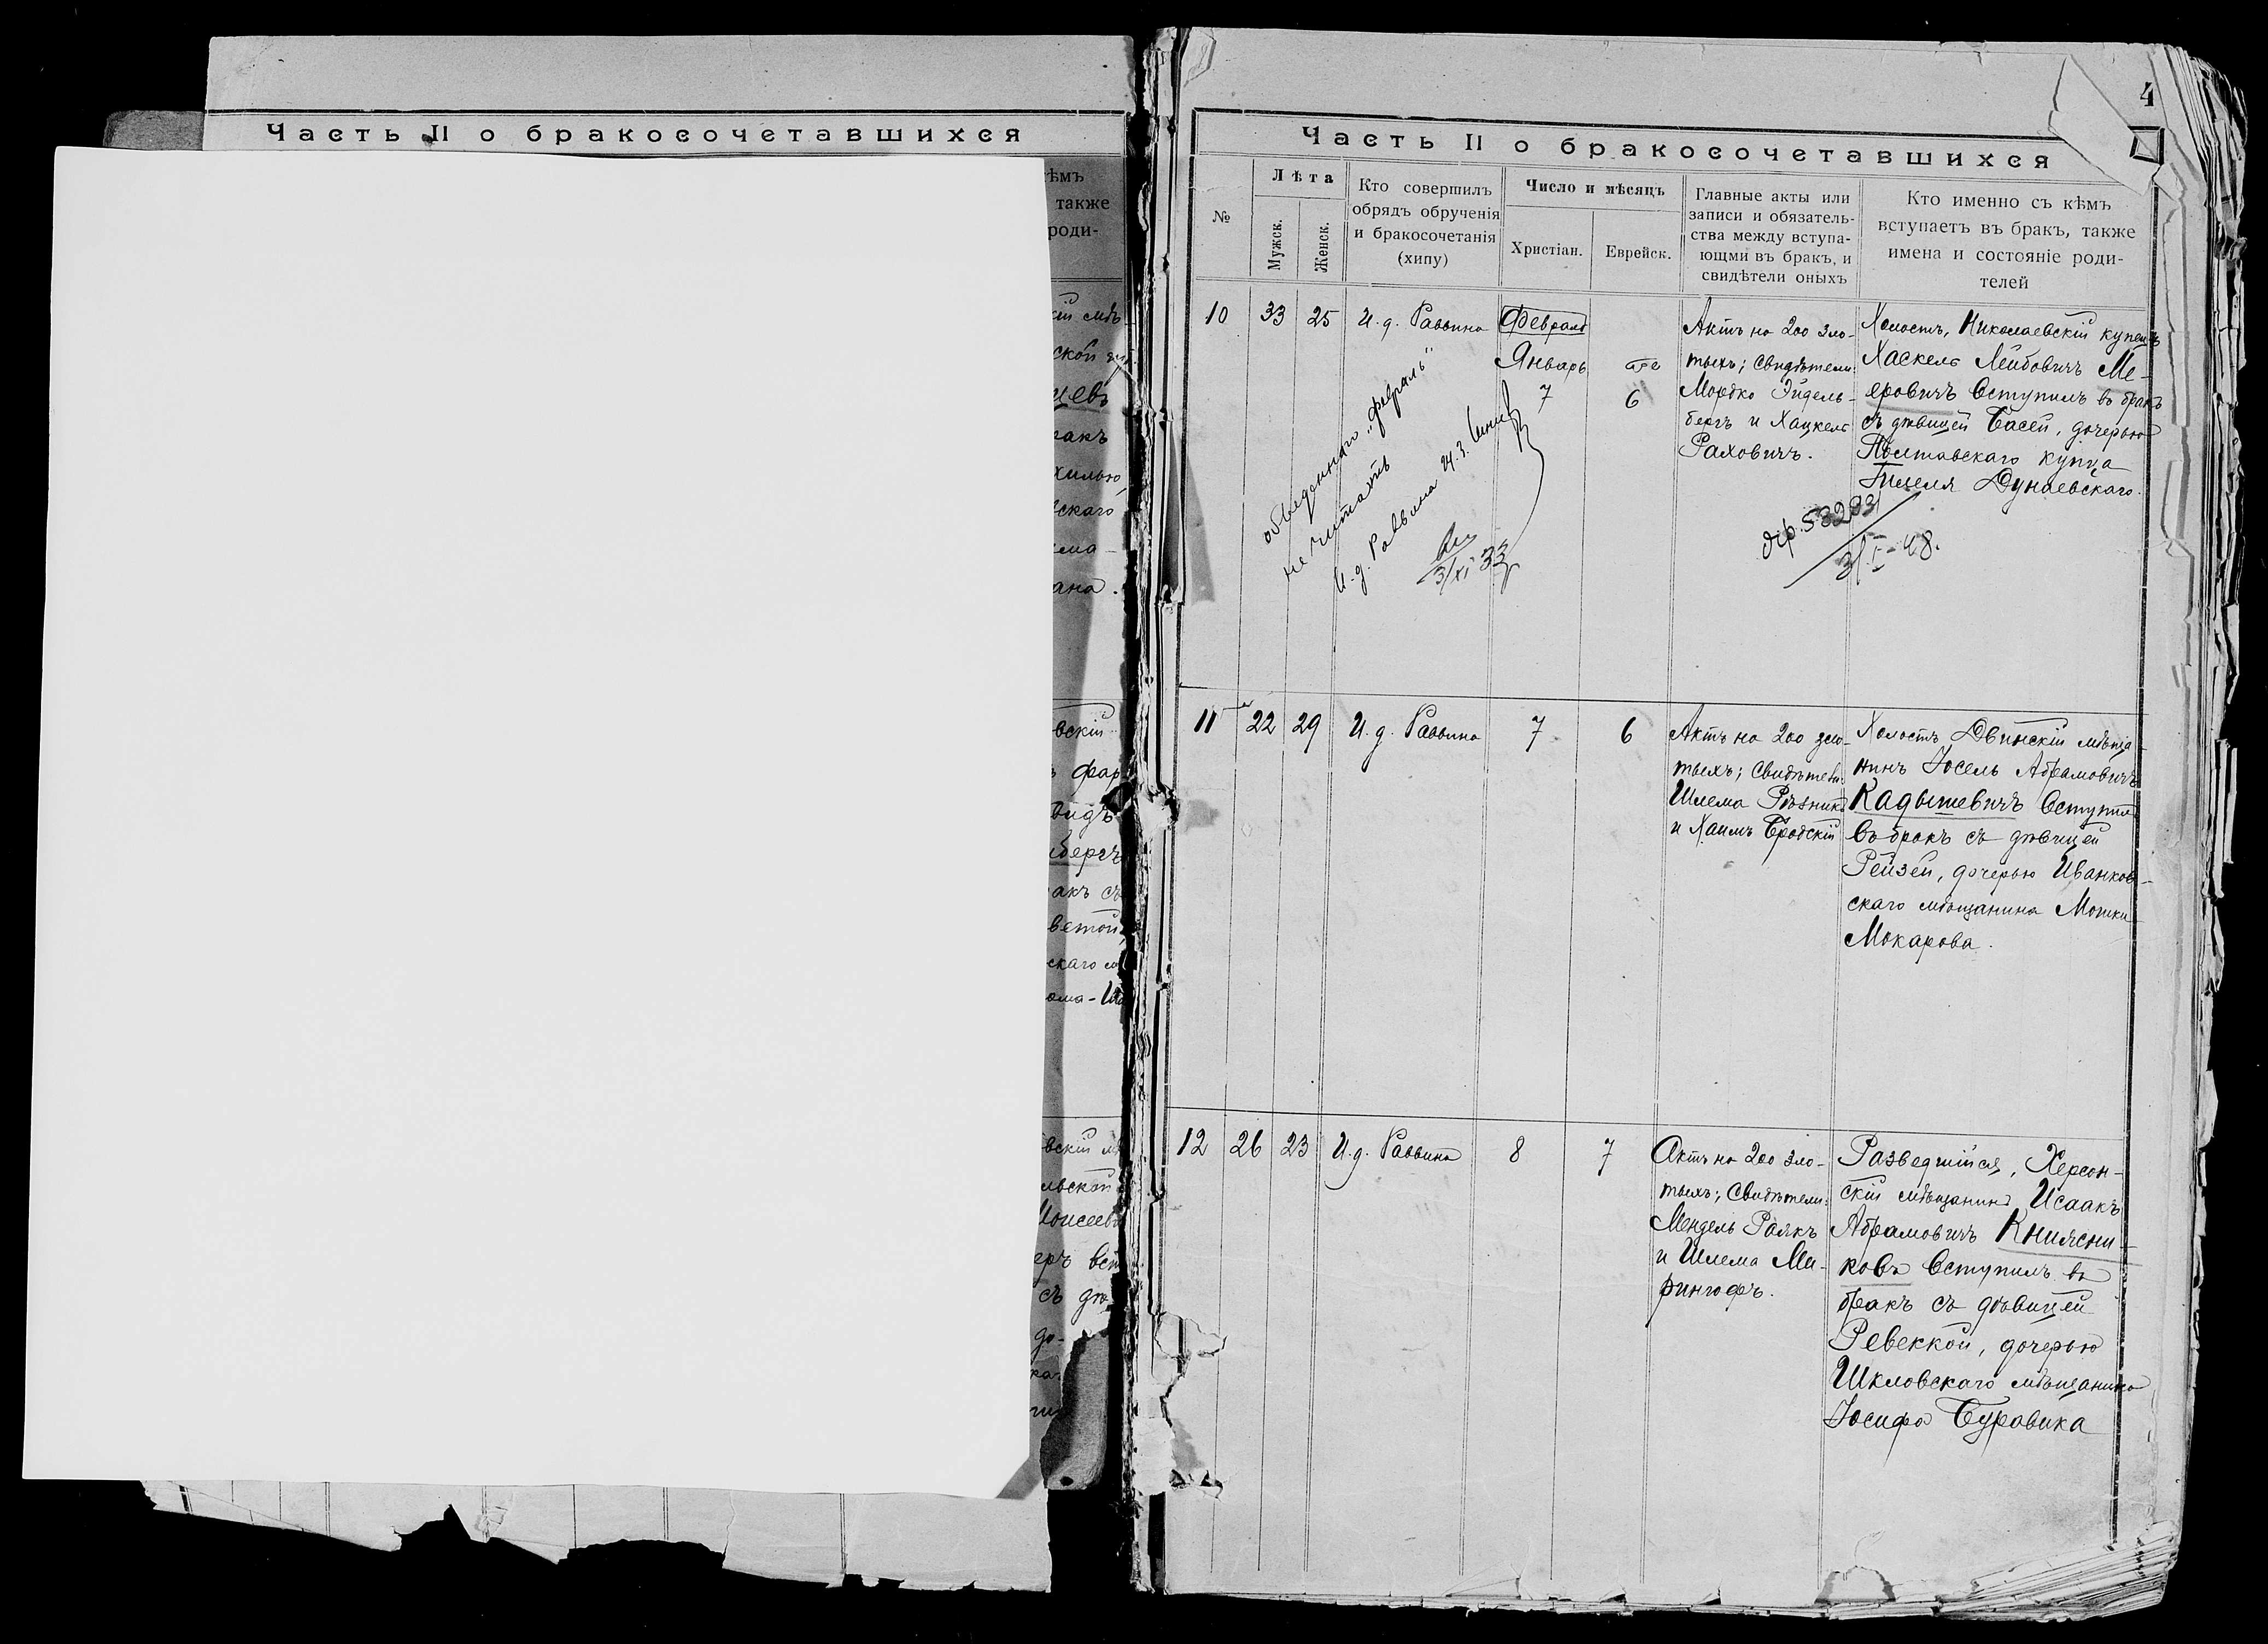 Часть II о бракосочетавшихся
ѣмъ
также
роди-
ской
цевъ
ракъ
хилью,
скаго
ана.
вскій
видъ
бергъ
акъ съ
ветой,
скаго м
вскій м
льской
Моисеев
еръ вст
съ дѣ-
до-
4
Часть II о бракосочетавшихся
№
Лѣта
Мужск.
Женск.
Кто совершилъ
обрядъ обрученія
и бракосочетанія
(хипу)
Число и мѣсяцъ
Христіан.
Еврейск.
Главные акты или
записи и обязатель-
ства между вступа-
ющми въ бракъ, и
свидѣтели оныхъ
Кто именно съ кѣмъ
вступаетъ въ бракъ, также
имена и состояніе роди-
телей
10
33
25
И. д. Раввина
Февраль
Январь
7
6
Актъ на 200 зло-
тыхъ; Свидѣтели:
Мордко Эйдель-
бергъ и Хацкель
Раховичъ.
Холостъ, Николаевскій купецъ
Хаскель Лейбовичъ Ме-
еровичъ вступилъ въ бракъ
съ дѣвицей Басей, дочерью
Полтавскаго купца
Гицеля Дунаевскаго.
обведеннаго „февраль"
не читать
И. д. Раввина
3/XI 33
53293
3/I-48.
11
22
29
И. д. Раввина
7
6
Актъ на 200 зло-
тыхъ; Свидѣтели:
Шлема Рѣзникъ
и Хаимъ Бродскій
Холостъ Двинскій мѣща-
нинъ Іосель Абрамовичъ
Кадышевичъ вступилъ
въ бракъ съ дѣвицей
Рейзей, дочерью Иванков-
скаго мѣщанина Мошки
Макарова.
12
26
23
И. д. Раввина
8
7
Актъ на 200 зло-
тыхъ; Свидѣтели:
Мендель Раякъ
и Шлема Ми-
рингофъ.
Разведшійся, Херсон-
скій мѣщанинъ Исаакъ
Абрамовичъ Княжни-
ковъ вступилъ въ
бракъ съ дѣвицей
Ревеккой, дочерью
Шкловскаго мѣщанина
Іосифа Буравика